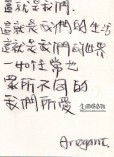 這就是我們.
這就是我們的生活
這就是我們的世界
一如往常也
眾所不同的
我們所愛
Arogant.